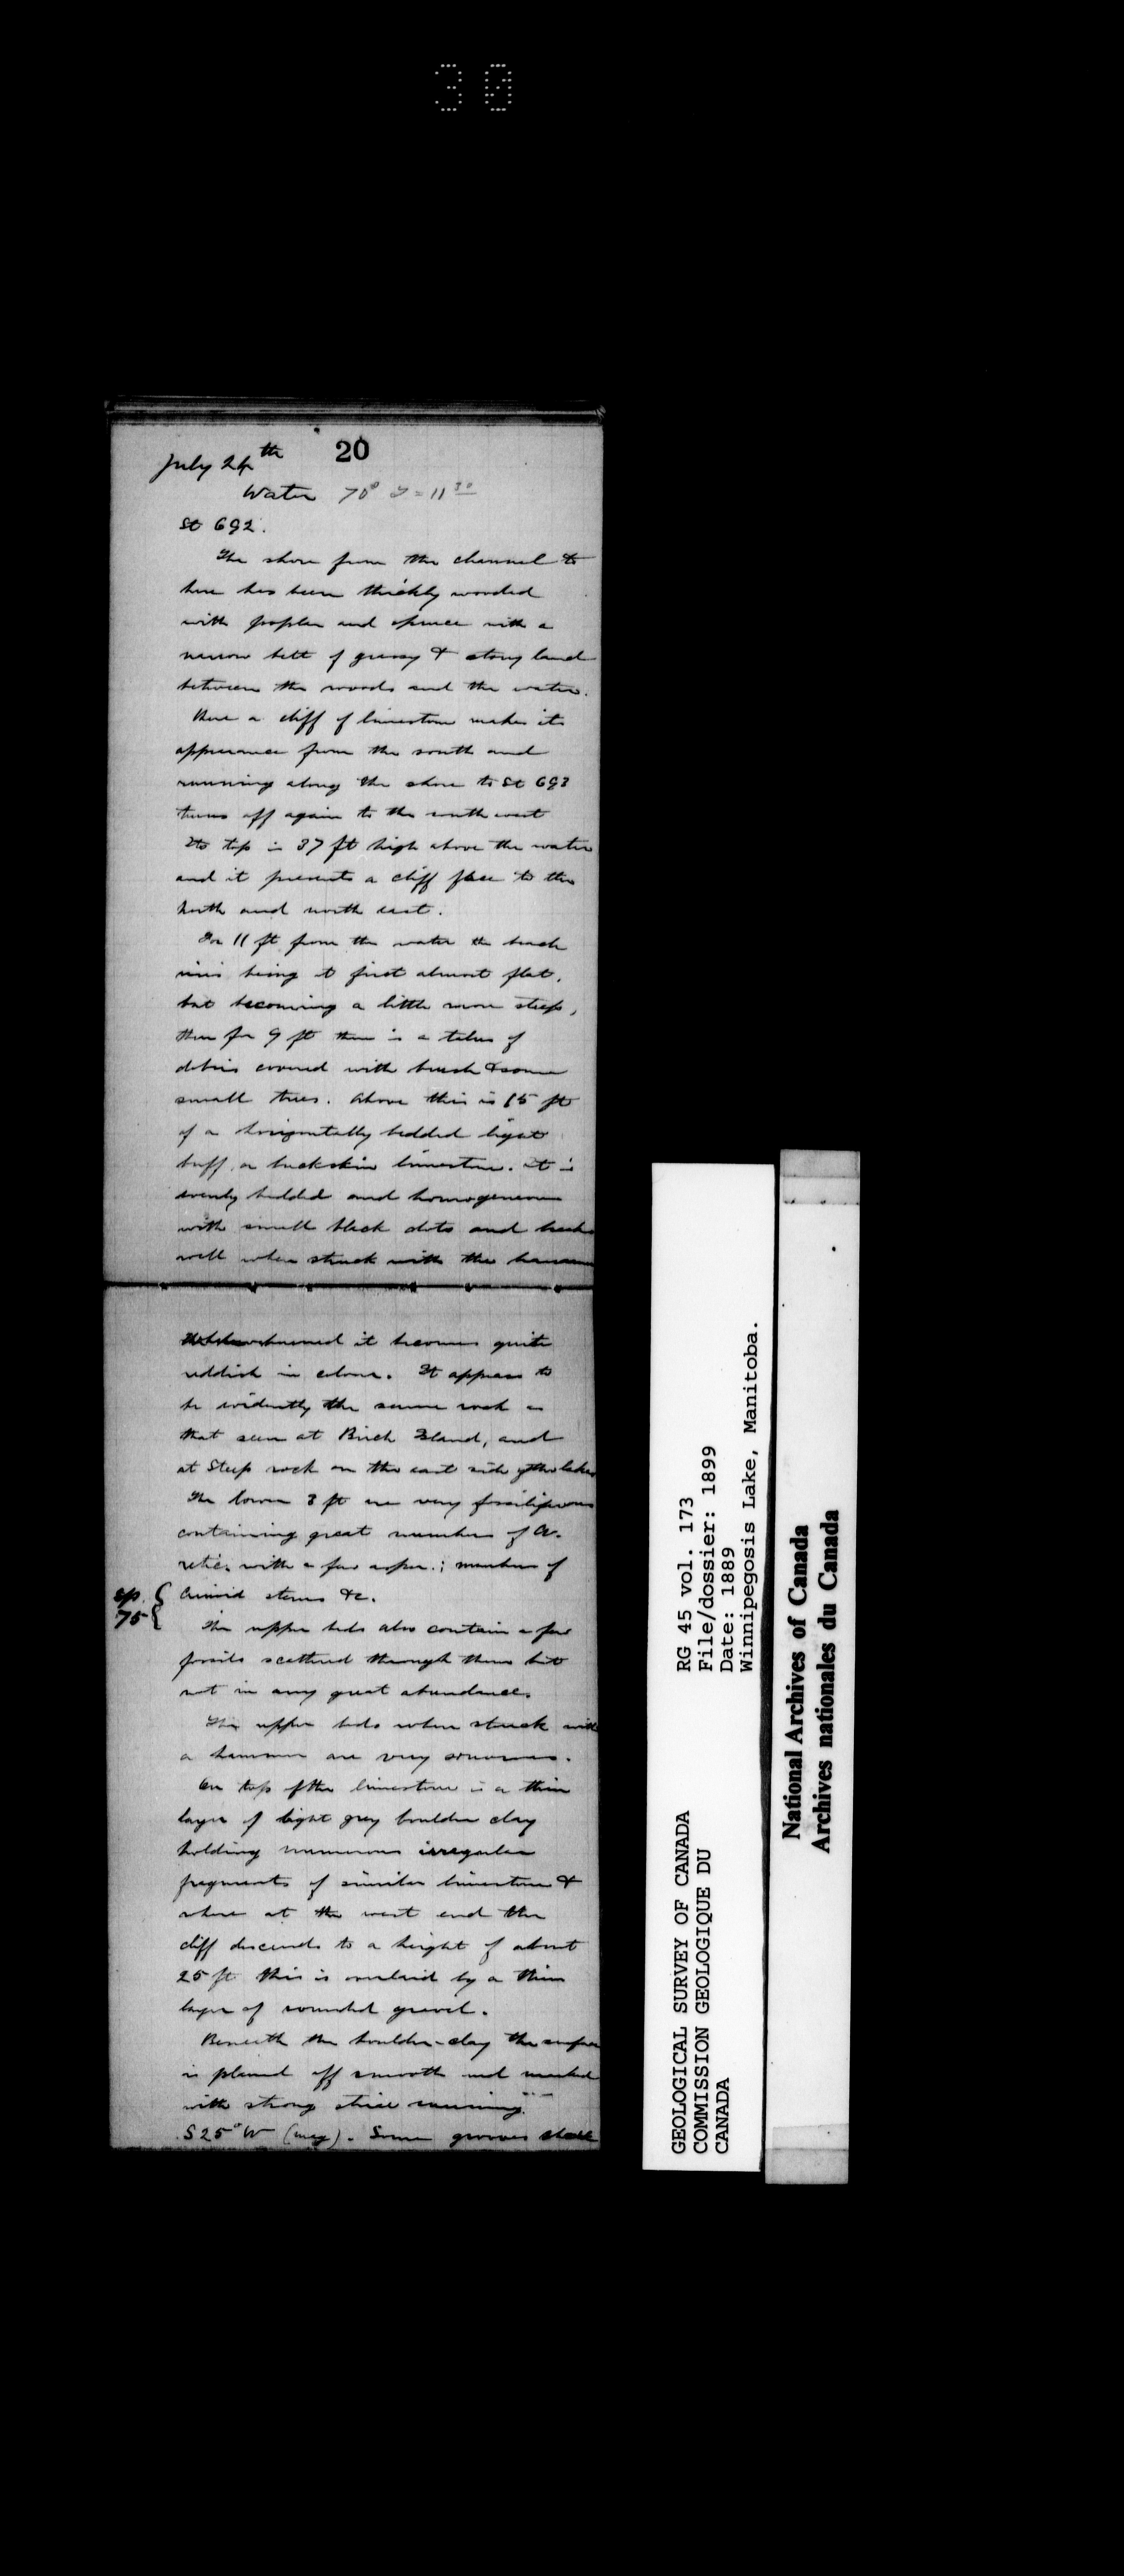 30
20
July 24th
Water 70° T = 11 30
St 692.
The shore from the channel to
here has been thickly wooded
with poplar and spruce with a
narrow belt of grassy & stony land
between the woods and the water.
Here a cliff of limestone makes its
appearance from the south and
running along the shore to St 693
turns off again to the south west
Its top is 37 ft high above the water
and it presents a cliff face to the
north and north east.
For 11 ft from the water the beach
rises being at first almost flat,
but becoming a little more steep,
then for 9 ft there is a talus of
debris covered with brush & some
small trees. Above this is 15 ft
of a horizontally bedded light
buff or buckskin limestone. It is
evenly bedded and homogeneous
with small black dots and breaks
well when struck with the hammer
it becomes quite
reddish in colour. It appears to
be evidently the same rock as
that seen at Birch Island, and
at Steep rock on the east side of the lake
The lower 3 ft are very fossiliferous
containing great numbers of A.
retic. with a few asper.; numbers of
Crinoid stems &c.
sp. 75 {
The upper beds also contain a few
fossils scattered through them but
not in any great abundance.
The upper beds when struck with
a hammer are very sonorous.
On top of the limestone is a thin
layer of light grey boulder clay
holding numerous irregular
fragments of similar limestone &
where at the west end the
cliff descends to a height of about
25 ft this is overlaid by a thin
layer of rounded gravel.
Beneath the boulder-clay the surface
is planed off smooth and marked
with strong striae running
S 25° W (mag). Some grooves
GEOLOGICAL SURVEY OF CANADA
COMMISSION GEOLOGIQUE DU
CANADA
RG 45 vol. 173
File/dossier: 1899
Date: 1889
Winnipegosis Lake, Manitoba.
National Archives of Canada
Archives nationales du Canada